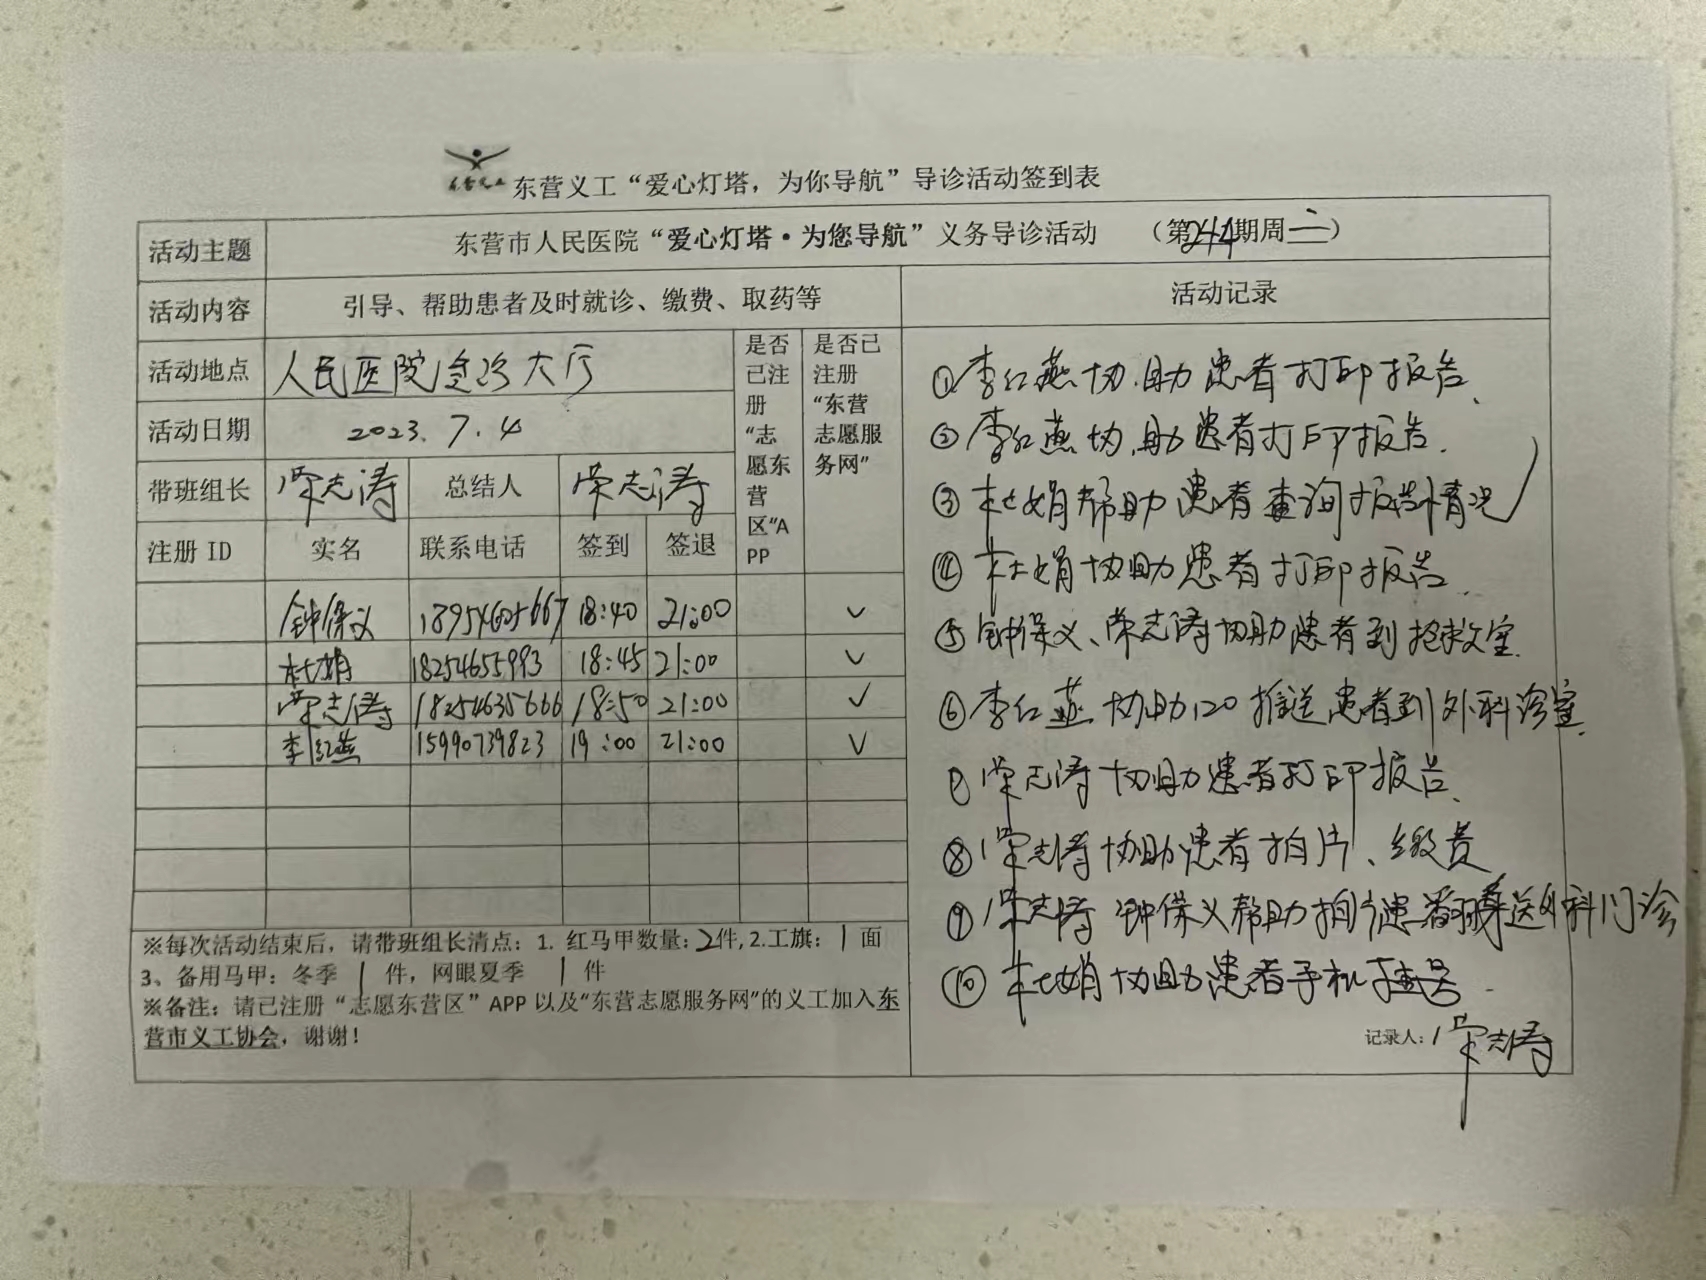 东营义工 东营义工“爱心灯塔，为你导航”导诊活动签到表
活动主题 东营市人民医院“爱心灯塔·为您导航”义务导诊活动 （第244期周二）
活动内容 引导、帮助患者及时就诊、缴费、取药等 活动记录
活动地点 人民医院急诊大厅
活动日期 2023.7.4
带班组长 荣志涛 总结人 荣志涛
注册 ID 实名 联系电话 签到 签退
是否
已注
册
“志
愿东
营
区”A
PP
是否已
注册
“东营
志愿服
务网”
钟保义 18954605667 18:40 21:00 ✓
杜娟 18254655993 18:45 21:00 ✓
荣志涛 18254635666 18:50 21:00 ✓
李红燕 15990739823 19:00 21:00 ✓
※每次活动结束后，请带班组长清点：1. 红马甲数量：2件, 2.工旗：1面
3、备用马甲：冬季 1 件，网眼夏季 1 件
※备注：请已注册“志愿东营区”APP 以及“东营志愿服务网”的义工加入东
营市义工协会，谢谢！
①李红燕协助患者打印报告、
②李红燕协助患者打印报告.
③杜娟帮助患者查询报告情况
④杜娟协助患者打印报告.
⑤钟保义、荣志涛协助患者到抢救室.
⑥李红燕协助120推送患者到外科诊室.
⑦荣志涛协助患者打印报告、
⑧荣志涛协助患者拍片、缴费
⑨荣志涛 钟保义帮助拍片患者 送外科门诊
⑩杜娟协助患者手机挂号.
记录人：荣志涛